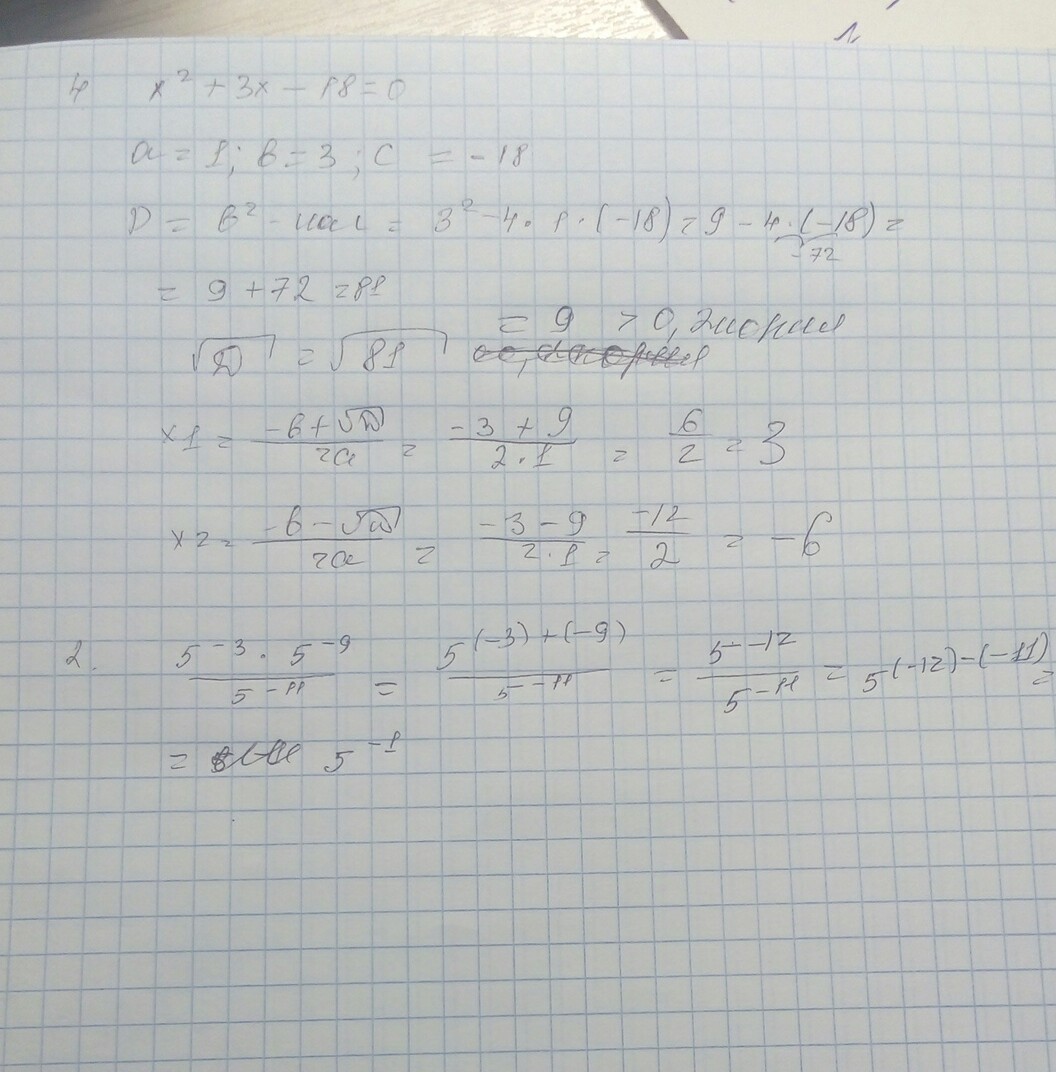 4 x² + 3x − 18 = 0
a = 1; b = 3; c = -18
D = b² - 4ac = 3² - 4 · 1 · (-18) = 9 - 4 · (-18) =
-72
= 9 + 72 = 81
√D = √81 = 9 > 0, 2 корня
x1 = (-b + √D)/2a = (-3 + 9)/(2 · 1) = 6/2 = 3
x2 = (-b - √D)/2a = (-3 - 9)/(2 · 1) = -12/2 = -6
2. (5⁻³ · 5⁻⁹)/5⁻¹¹ = 5^((-3) + (-9))/5⁻¹¹ = 5⁻¹²/5⁻¹¹ = 5^((-12) - (-11)) =
= 5⁻¹